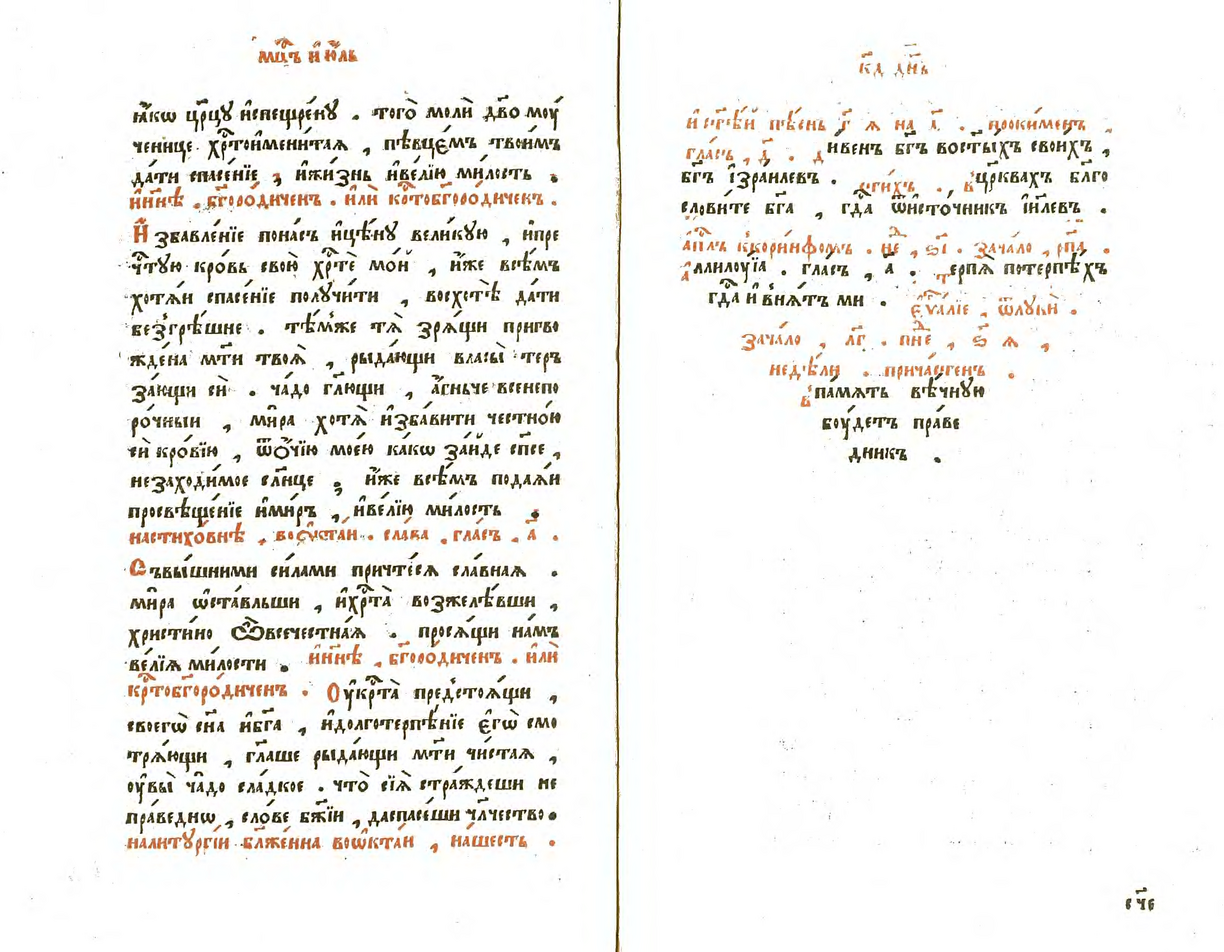 мцⷭ҇ъ і҆ю҆́ль
ꙗ҆́кѡ црⷭ҇цꙋ и҆спещре́нꙋ . того̀ молѝ дв҃о моу́
ченице хрⷭ҇тои҆мени́таѧ , пѣвце́мъ твои́мъ
да́ти спасе́нїе , и҆жи́знь и҆ве́лїю ми́лость .
и҆нн҃ѣ . бг҃оро́диченъ . и҆лѝ крⷭ҇тобг҃оро́диченъ .
И҆збавле́нїе пона́съ и҆цѣ́нꙋ вели́кꙋю , и҆пре
чⷭ҇тꙋю кро́вь свою̀ хрⷭ҇тѐ мо́й , и҆́же всѣ́мъ
хотѧ́и спасе́нїе полꙋчи́ти , восхотѣ̀ да́ти
безгрѣ́шне . тѣ́мже тѧ̀ зрѧ́щи пригво
жде́на мт҃и твоѧ̀ , рыда́ющи власы̀ тер
за́ющи си́ . ча́до гл҃ющи , а҆́гньче всенепо
ро́чныи , ми́ра хотѧ̀ и҆зба́вити честно́ю
сѝ кро́вїю , ѿо́чїю моє́ю ка́кѡ за́йде сп҃се ,
незаходи́мое сл҃нце , и҆́же всѣ́мъ пода́ѧи
просвѣще́нїе и҆ми́ръ , и҆ве́лїю ми́лость
настихо́внѣ , восꙋста́и . сла́ва , гла́съ . а҃ .
Съвы́шними си́лами причте́сѧ сла́внаѧ .
ми́ра ѡ҆ста́вльши , и҆хрⷭ҇та̀ возжелѣ́вши ,
христи́но ѽвсечестна́ѧ . просѧ́щи на́мъ
ве́лїѧ ми́лости . и҆нн҃ѣ , бг҃оро́диченъ . и҆лѝ
крⷭ҇тобг҃оро́диченъ . Оу҆крⷭ҇та̀ предстоѧ́щи ,
своегѡ̀ сн҃а и҆бг҃а , и҆долготерпѣ́нїе є҆гѡ̀ смо
трѧ́ющи , гл҃аше рыда́ющи мт҃и чи́стаѧ ,
оу҆вы̀ ча́до сла́дкое . что̀ сїѧ̀ стра́ждеши не
пра́веднѡ , сло́ве бж҃їи , даспасе́ши чл҃чество .
налитꙋргі́и бл҃же́нна воѡ҆кта́и , на́шесть .
к҃д дн҃ь
и҆ свⷭ҇ты́й пѣ́снь г҃ ѧ на д҃ . проки́менъ
гла́съ , д҃ . ди́венъ бг҃ъ востⷯы́хъ свои́хъ ,
бг҃ъ і҆зра́илевъ . сти́хъ . вцр҃квахъ бл҃го
слови́те бг҃а , гдⷭ҇а ѿи҆сто́чникъ і҆и҃левъ .
а҆пⷭ҇лъ ккори́нфѡмъ . не , ѕ҃і . зача́ло , рп҃а .
а҆ллилꙋ́їа . гла́съ , а҃ . терпѧ̀ потерпѣ́хъ
гдⷭ҇а и҆ внѧ́тъ ми . є҆ѵⷢ҇а́лїе , ѿлꙋкѝ .
зача́ло , лг҃ . пнⷣе , ѕ҃ ѧ ,
недѣ́ли . прича́стенъ .
впа́мѧть вѣ́чнꙋю
боу́детъ пра́ве
дникъ .
є҆чⷭ҇е